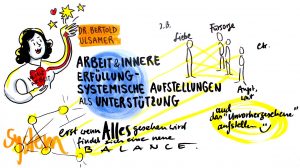 DR. BERTOLD
ULSAMER
ARBEIT & INNERE
ERFÜLLUNG-
SYSTEMISCHE AUFSTELLUNGEN
ALS UNTERSTÜTZUNG
z.B.
Liebe
Fürsorge
etc.
Angst,
Wut
und
das "Unvorhergesehene"
aufstellen
System
erst wenn Alles gesehen wird
findet sich eine neue
BALANCE.